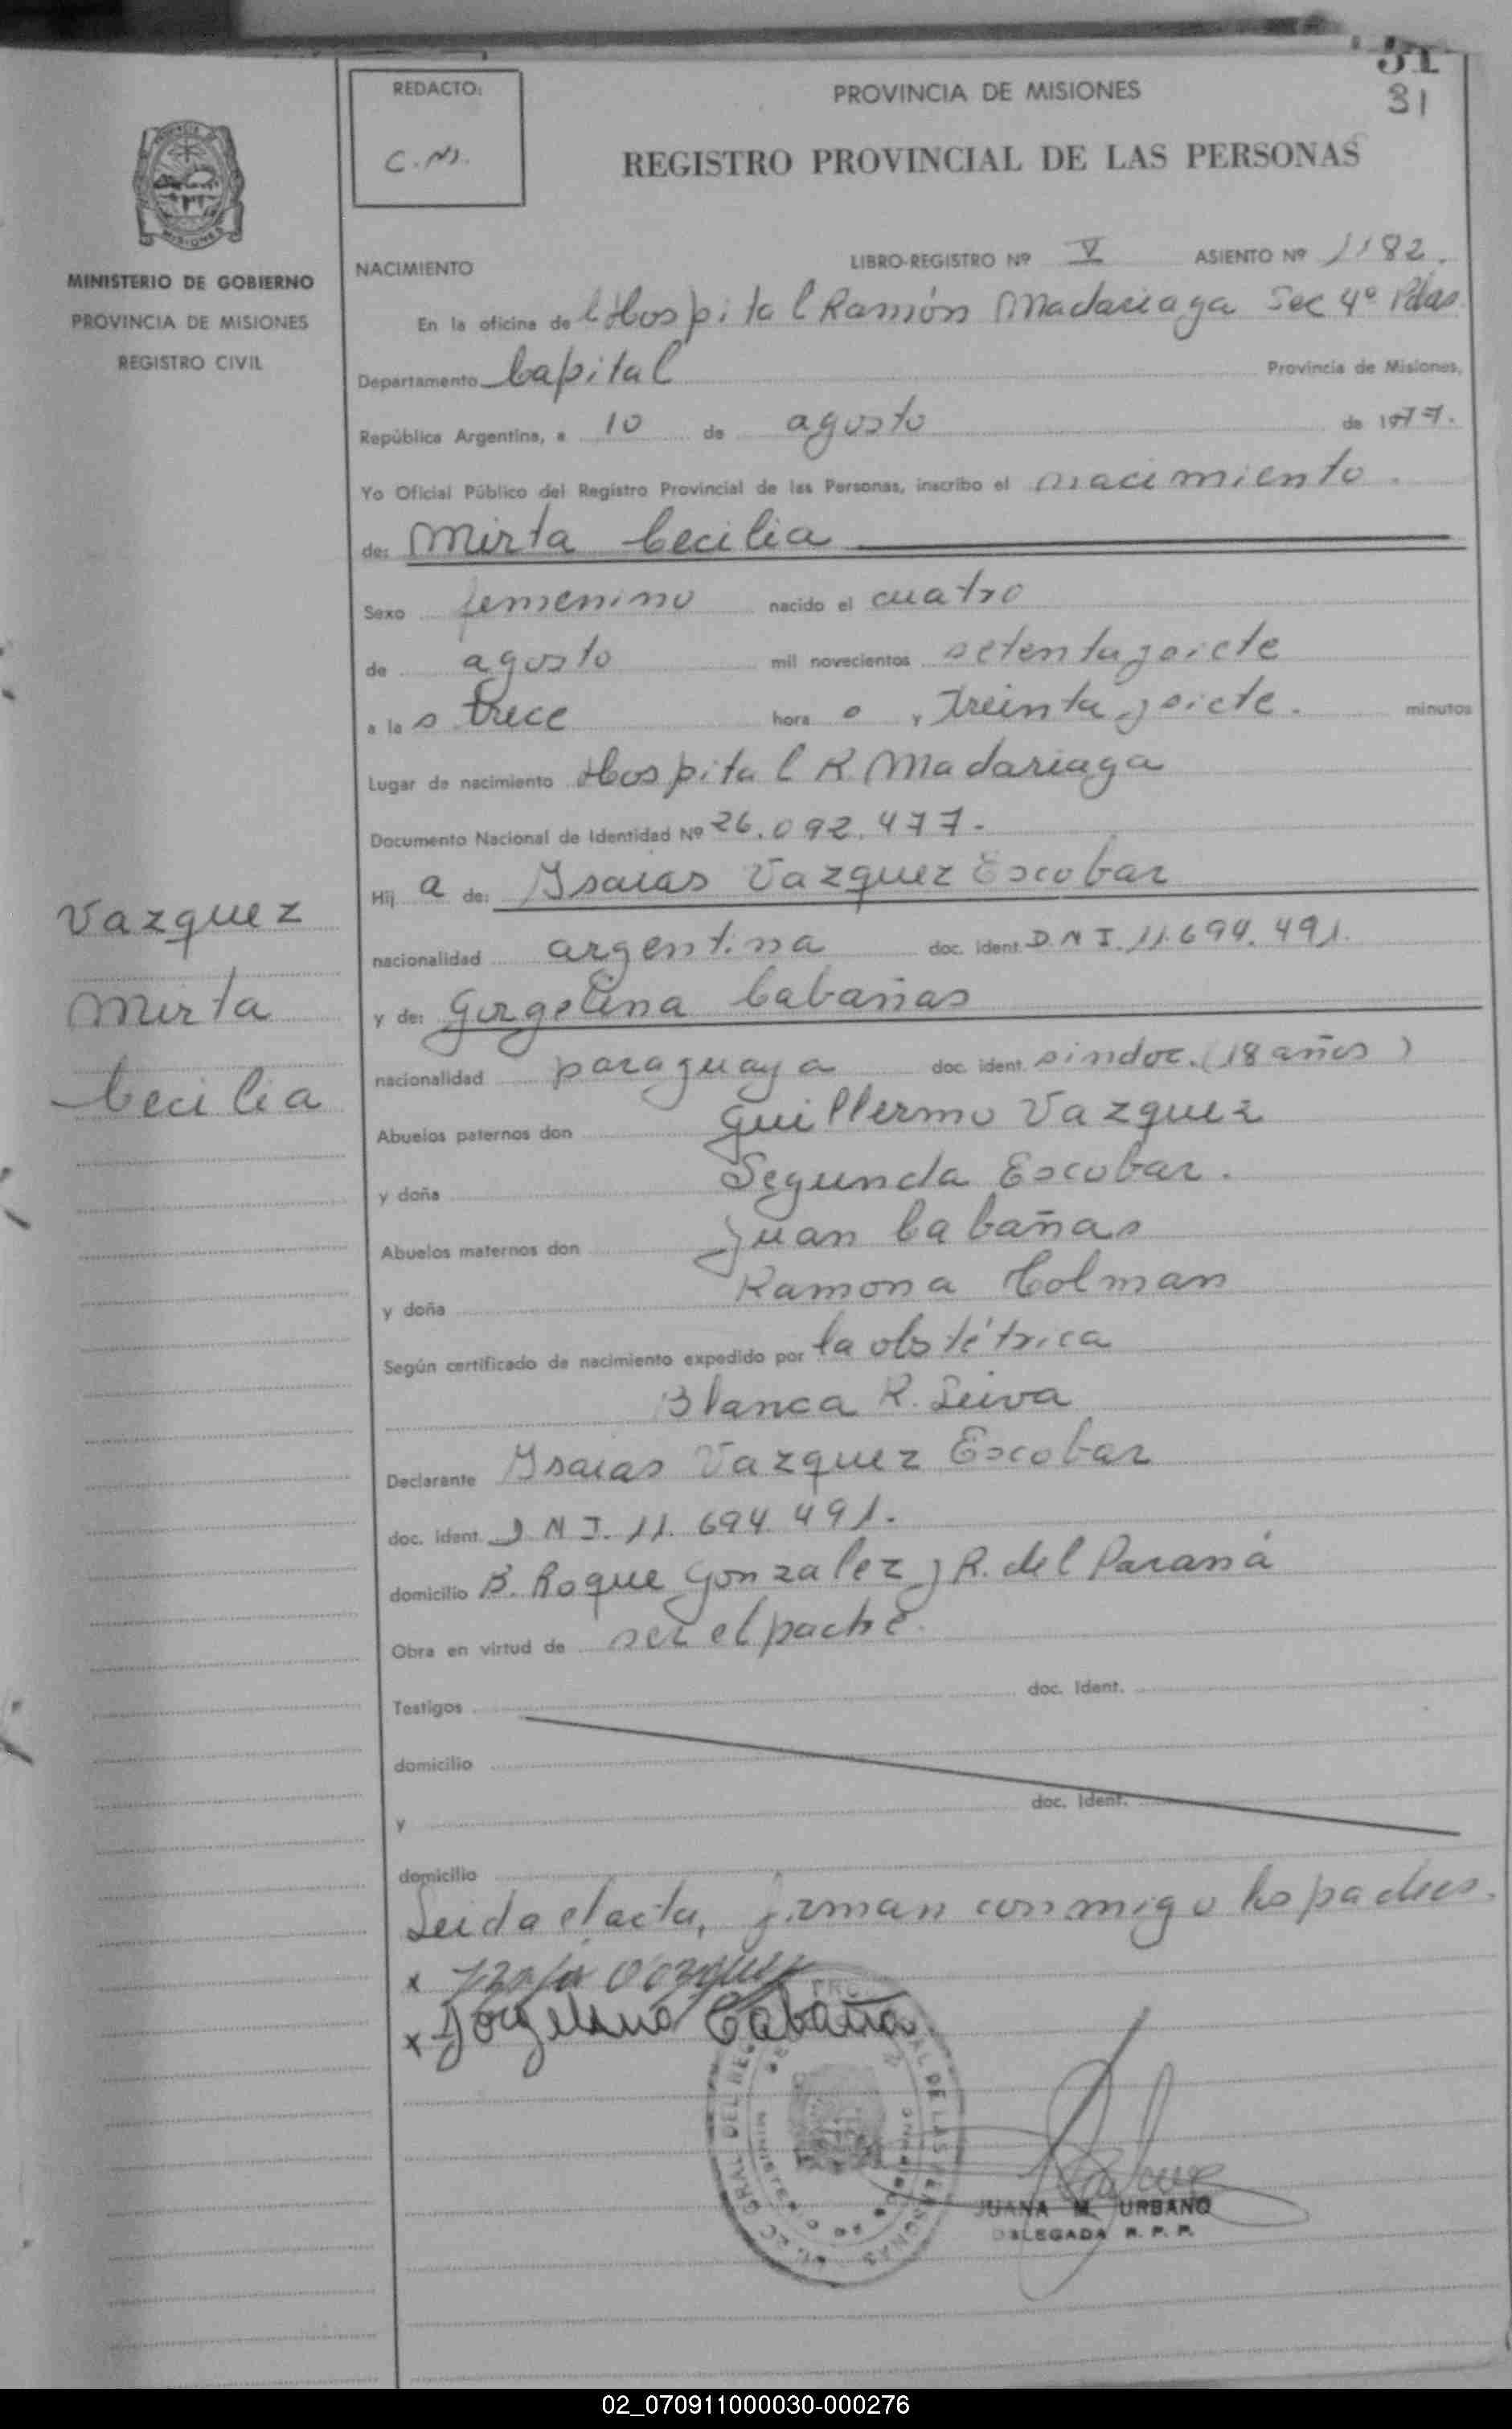 31
31
REDACTO:
C. N.
PROVINCIA DE MISIONES
REGISTRO PROVINCIAL DE LAS PERSONAS
MISIONES
MINISTERIO DE GOBIERNO
PROVINCIA DE MISIONES
REGISTRO CIVIL
Vazquez
Mirta
Cecilia
NACIMIENTO
LIBRO-REGISTRO Nº V ASIENTO Nº 1182.
En la oficina de Hospital Ramón Madariaga Sec 4º Pdas.
Departamento Capital Provincia de Misiones,
República Argentina, a 10 de agosto de 1977.
Yo Oficial Público del Registro Provincial de las Personas, inscribo el nacimiento.
de: Mirta Cecilia
Sexo femenino nacido el cuatro
de agosto mil novecientos setenta y siete
a la s trece hora s y treinta y siete. minutos
Lugar de nacimiento Hospital R. Madariaga
Documento Nacional de Identidad Nº 26.092.477-
Hij a de: Isaias Vazquez Escobar
nacionalidad argentina doc. ident. D.N I. 11.694.491.
y de: Gorgelina Cabañas
nacionalidad paraguaya doc. ident. sin doc. (18 años)
Abuelos paternos don Guillermo Vazquez
y doña Segunda Escobar.
Abuelos maternos don Juan Cabañas
y doña Ramona Colman
Según certificado de nacimiento expedido por la obstétrica
Blanca R. Leiva
Declarante Isaias Vazquez Escobar
doc. ident. D N I. 11. 694. 491.
domicilio B. Roque Gonzalez y R. del Paraná
Obra en virtud de ser el padre.
Testigos doc. Ident.
domicilio
y doc. Ident.
domicilio
Leida el acta, firman conmigo los padres.
x Vazquez
x Jorgelina Cabaña
JUANA M. URBANO
DELEGADA R. P. P.
02_070911000030-000276